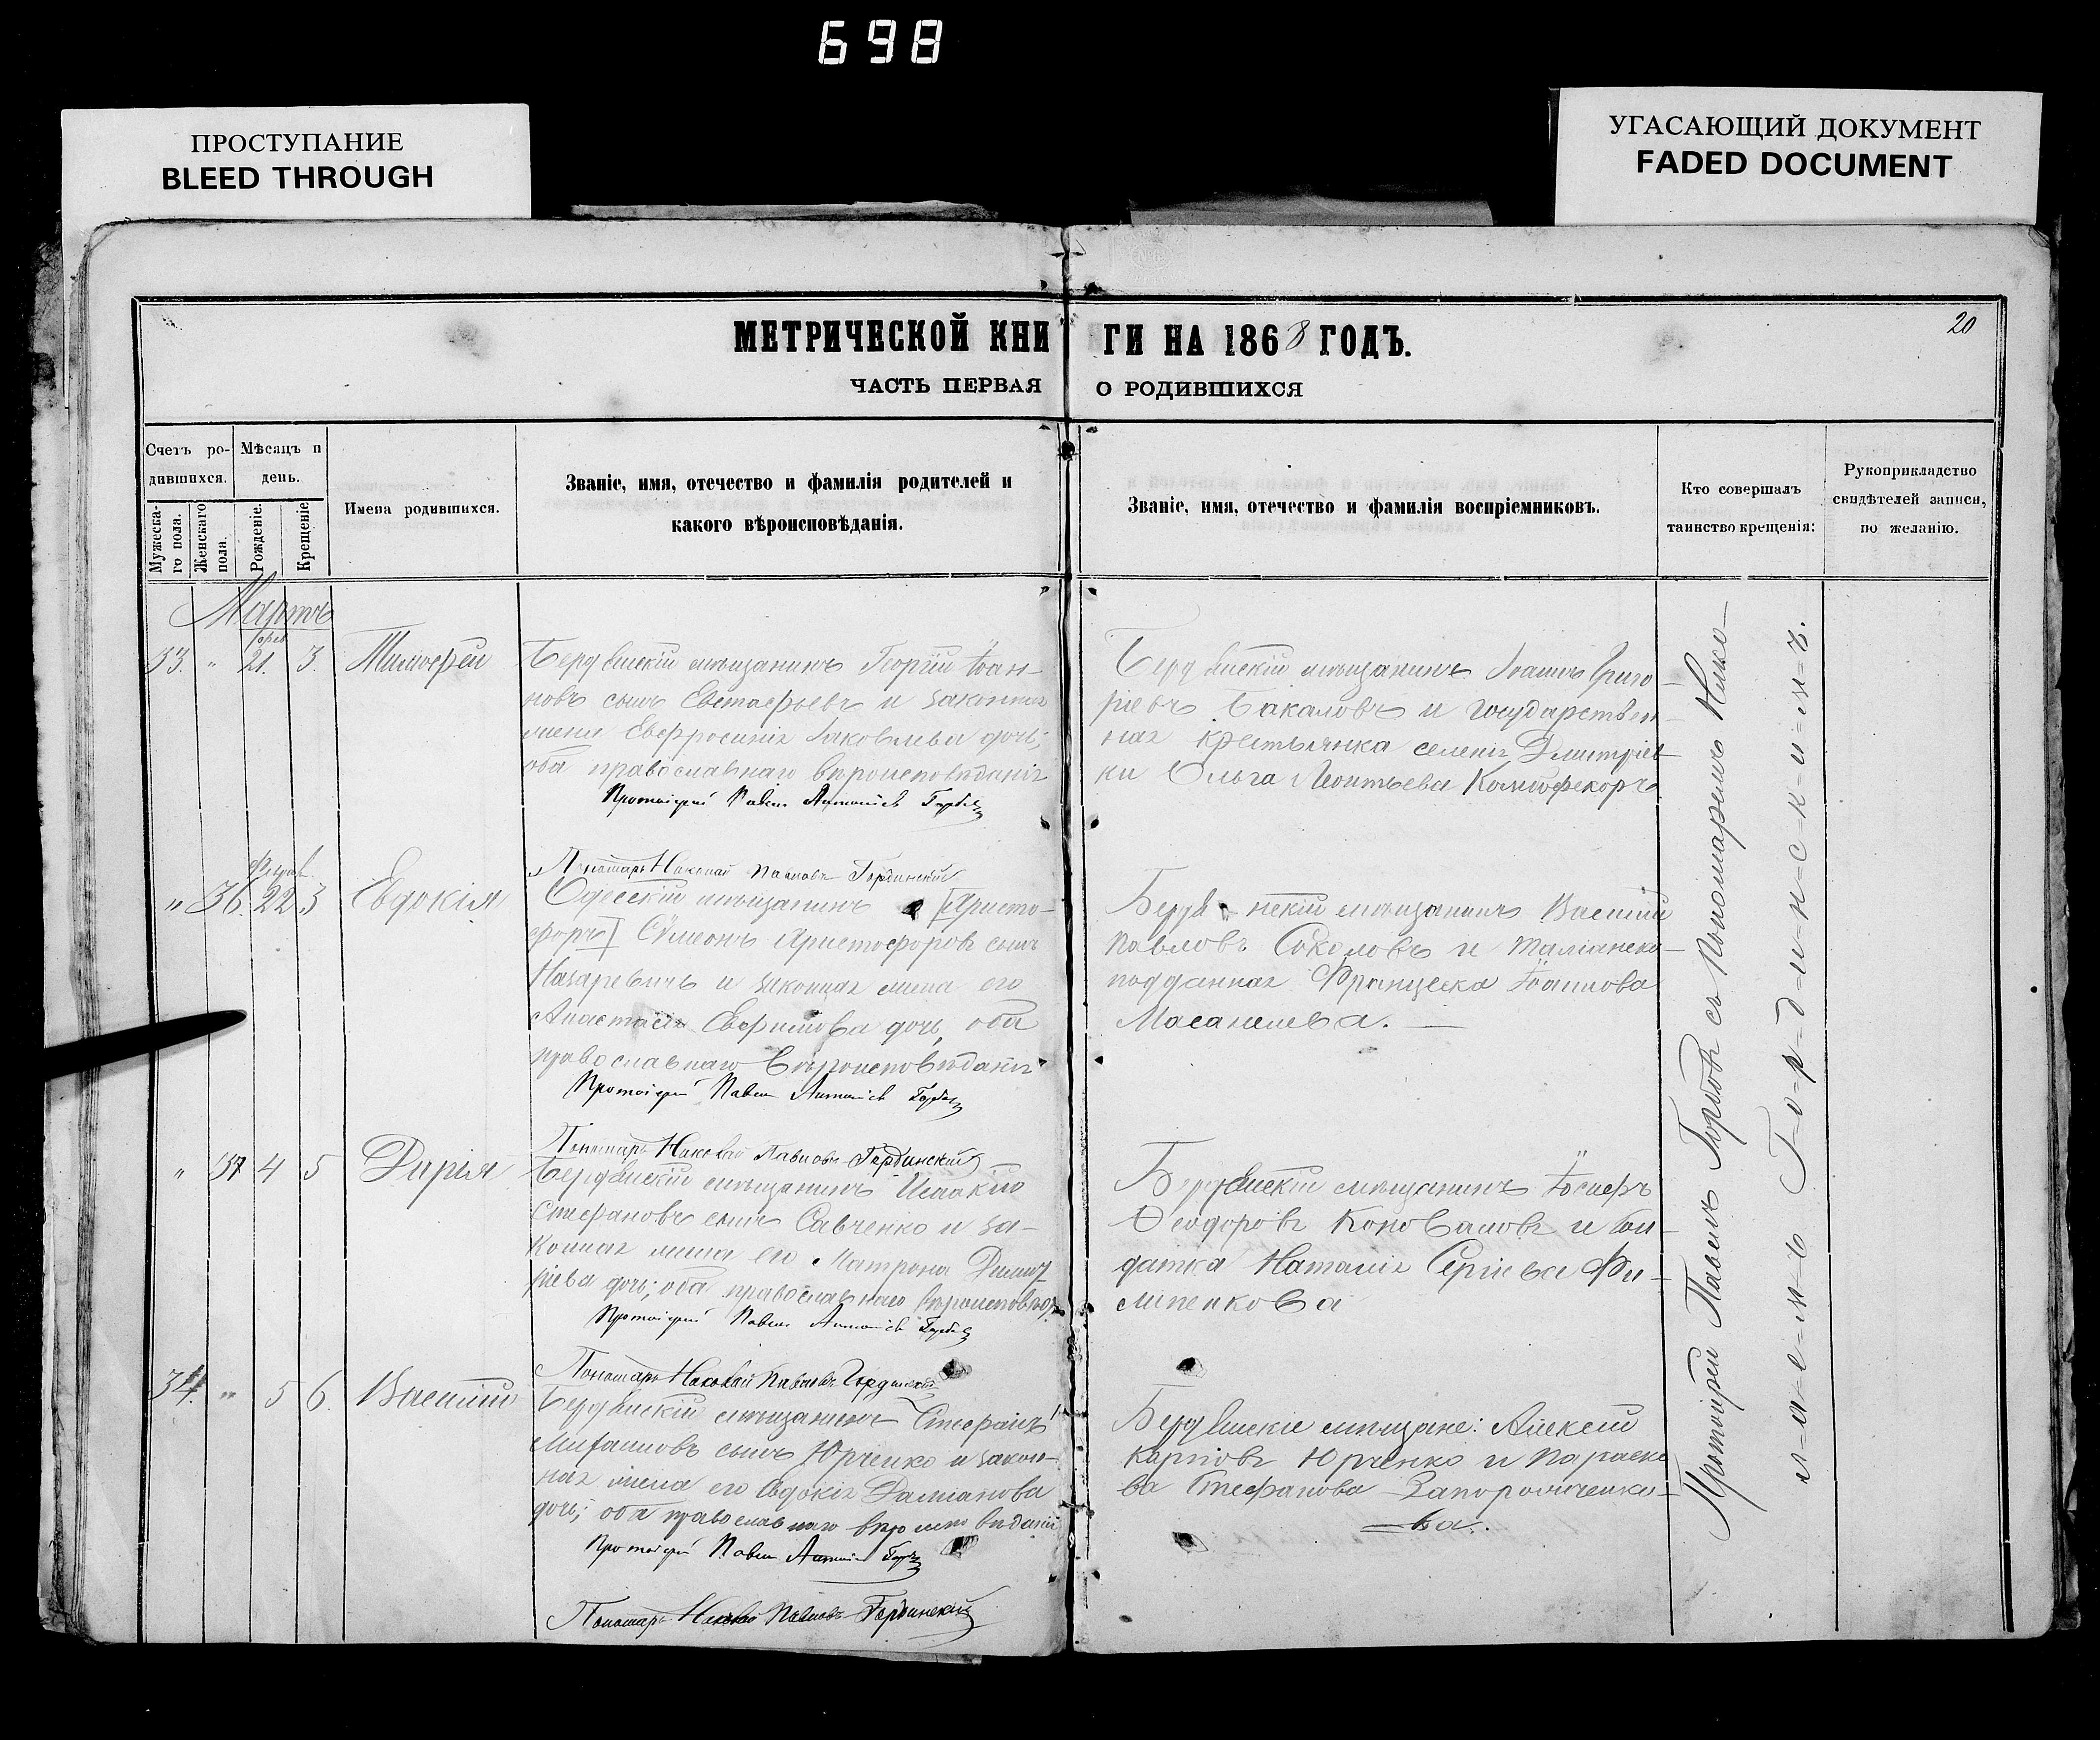 698
ПРОСТУПАНИЕ
BLEED THROUGH
УГАСАЮЩИЙ ДОКУМЕНТ
FADED DOCUMENT
МЕТРИЧЕСКОЙ КНИ ГИ НА 1868 ГОДЪ.
20
ЧАСТЬ ПЕРВАЯ О РОДИВШИХСЯ
Счетъ ро-
дившихся.
Мужеска-
го пола.
Женскаго
пола.
Мѣсяцъ и
день.
Рожденіе.
Крещеніе
Имена родившихся.
Званіе, имя, отечество и фамилія родителей и
какого вѣроисповѣданія.
Званіе, имя, отечество и фамилія воспріемниковъ.
Кто совершалъ
таинство крещенія:
Рукоприкладство
свидѣтелей записи,
по желанію.
Мартъ
33. " 21. 3. Тимофей
Бердянскій мѣщанинъ Георгій Іоан-
новъ сынъ Евстафьевъ и законная
жена Евфросинія Іаковлева дочь;
оба православнаго вѣроисповѣданія
Протоіерей Павелъ Антоніевъ
Бердянскій мѣщанинъ Іоаннъ Григо-
ріевъ Бакаловъ и государствен-
ная крестьянка селенія Дмитріев-
ки Ольга Леонтьева
Пономарь Николай Павловъ Гординскій
Феврал
" 36. 22 3 Евдокія
Одесскій мѣщанинъ [Христо-
форъ] Сѷмеонъ Христофоровъ сынъ
Назаревичъ и законная жена его
Анастасія дочь, оба
православнаго вѣроисповѣданія
Протоіерей Павелъ Антоніевъ
Бердянскій мѣщанинъ Василій
Павловъ Соколовъ и италіанско-
подданная Франческа Іоаннова
Пономарь Николай Павловъ Гординскій
" 37 4 5 Дарія
Бердянскій мѣщанинъ Исаакій
Стефановъ сынъ Савченко и за-
конная жена его Матрона Димит-
ріева дочь; оба православнаго вѣроисповѣд.
Протоіерей Павелъ Антоніевъ
Бердянскій мѣщанинъ Іосифъ
Ѳеодоровъ Коноваловъ и сол-
датка Наталія Сергіева Фи-
липенкова
Пономарь Николай Павловъ Гординскій
34. " 5 6. Василій
Бердянскій мѣщанинъ Стефанъ
Михаиловъ сынъ Юрченко и закон-
ная жена его Евдокія Даміанова
дочь; оба православнаго вѣроисповѣданія
Протоіерей Павелъ Антоніевъ
Бердянскіе мѣщане: Алексій
Карповъ Юрченко и Параске-
ва Стефанова Запорожченко-
ва.
Пономарь Николай Павловъ Гординскій
Протоіерей Павелъ Горбовъ съ Пономаремъ Нико-
л-а-е-м-ъ Г-о-р-д-и-н-с-к-и-м-ъ.